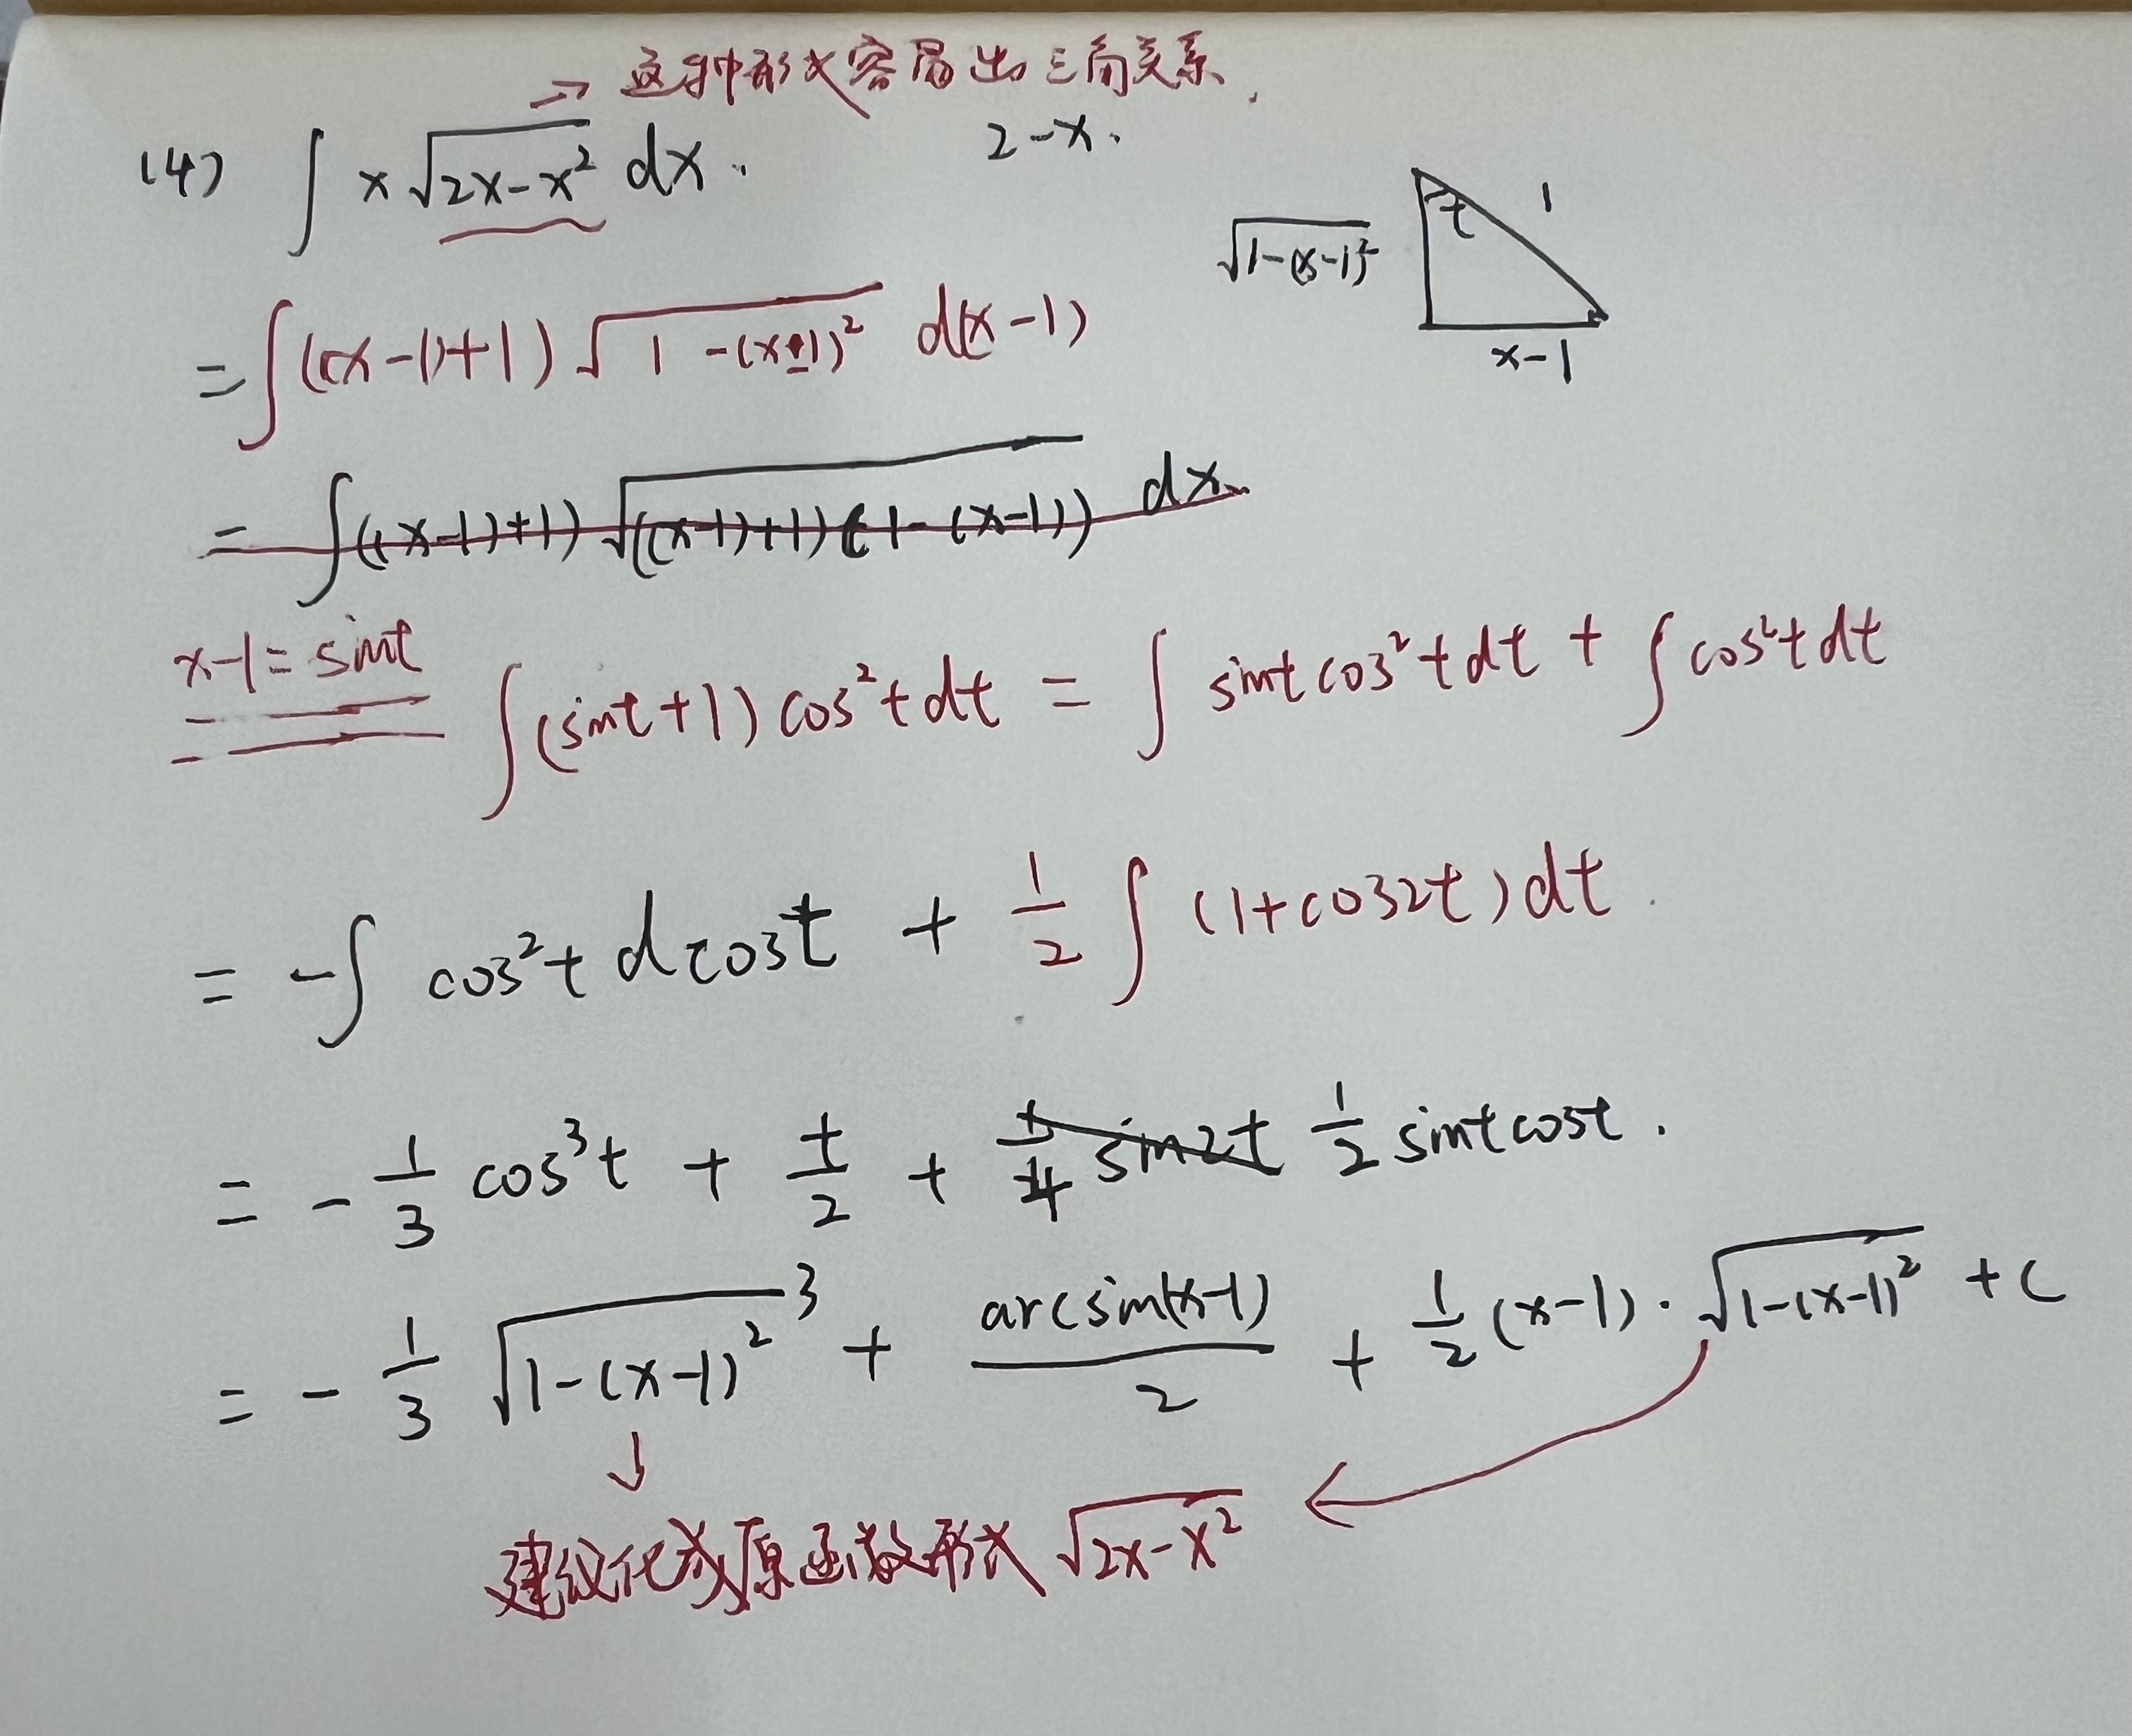 → 这种形式容易出三角关系.
(4) ∫ x √(2x-x²) dx. 2-x.
t 1
√(1-(x-1)²)
x-1
= ∫ ((x-1)+1) √(1-(x-1)²) d(x-1)
= ∫ ((x-1)+1) √(((x-1)+1)(1-(x-1))) dx
x-1=sint
= ∫ (sint+1) cos²t dt = ∫ sint cos²t dt + ∫ cos²t dt
= -∫ cos²t dcost + 1/2 ∫ (1+cos2t) dt
= - 1/3 cos³t + t/2 + 1/4 sin2t 1/2 sint cost.
= - 1/3 √(1-(x-1)²)³ + arcsin(x-1)/2 + 1/2 (x-1)·√(1-(x-1)²) + C
↓
建议化成原函数形式 √(2x-x²) ←